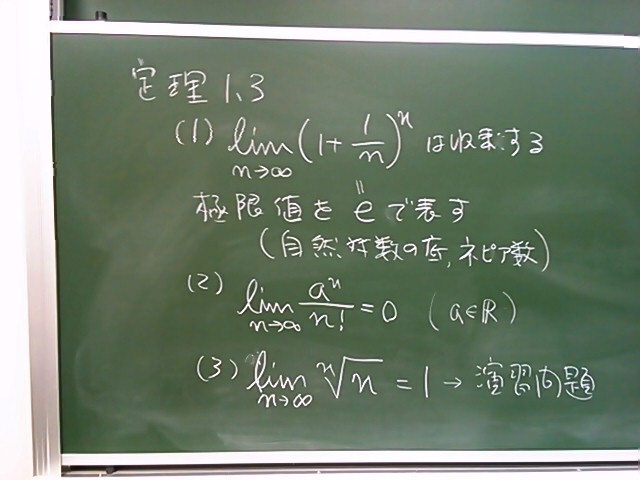 定理1.3
(1) lim_{n→∞} (1+1/n)^n は収束する
極限値を e で表す
(自然対数の底, ネピア数)
(2) lim_{n→∞} a^n/n! = 0 (a∈ℝ)
(3) lim_{n→∞} ⁿ√n = 1 → 演習問題